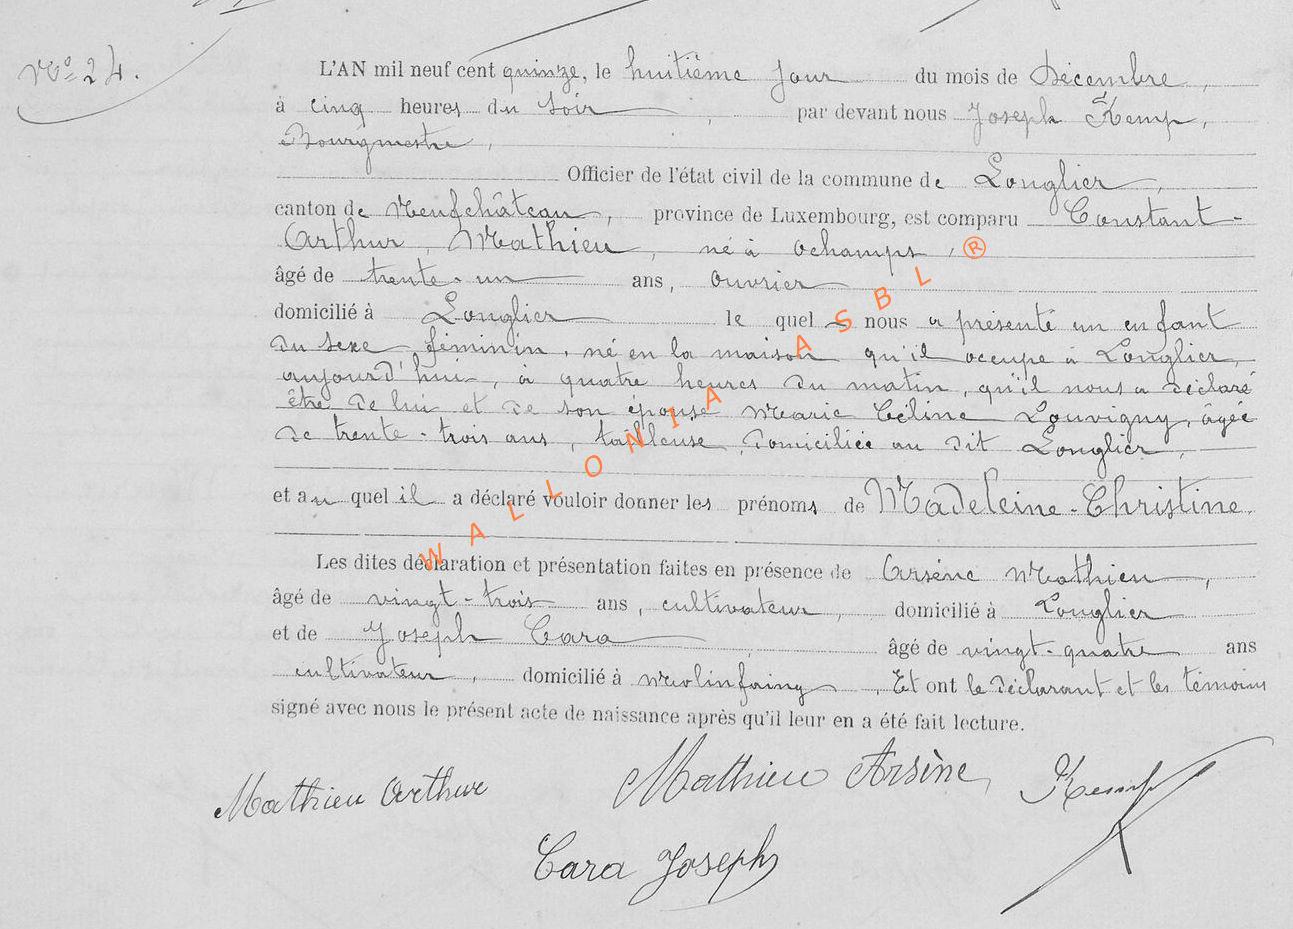 N° 24.
L'AN mil neuf cent quinze, le huitième jour du mois de Décembre,
à cinq heures du soir, par devant nous Joseph Kemp,
Bourgmestre,
Officier de l'état civil de la commune de Longlier,
canton de Neufchâteau, province de Luxembourg, est comparu Constant-
Arthur, Mathieu, né à Ochamps, ®
âgé de trente-un ans, ouvrier
domicilié à Longlier le quel nous a présenté un enfant
du sexe féminin, né en la maison qu'il occupe à Longlier,
aujourd'hui, à quatre heures du matin, qu'il nous a déclaré
être de lui et de son épouse Marie Céline Louvigny, âgée
de trente-trois ans, tailleuse, domiciliée au dit Longlier,
et au quel il a déclaré vouloir donner les prénoms de Madeleine-Christine.
Les dites déclaration et présentation faites en présence de Arsène Mathieu,
âgé de vingt-trois ans, cultivateur, domicilié à Longlier
et de Joseph Cara, âgé de vingt-quatre ans
cultivateur, domicilié à Molinfaing, Et ont le déclarant et les témoins
signé avec nous le présent acte de naissance après qu'il leur en a été fait lecture.
Mathieu Arthur Mathieu Arsène Kemp
Cara Joseph
WALLONIA ASBL